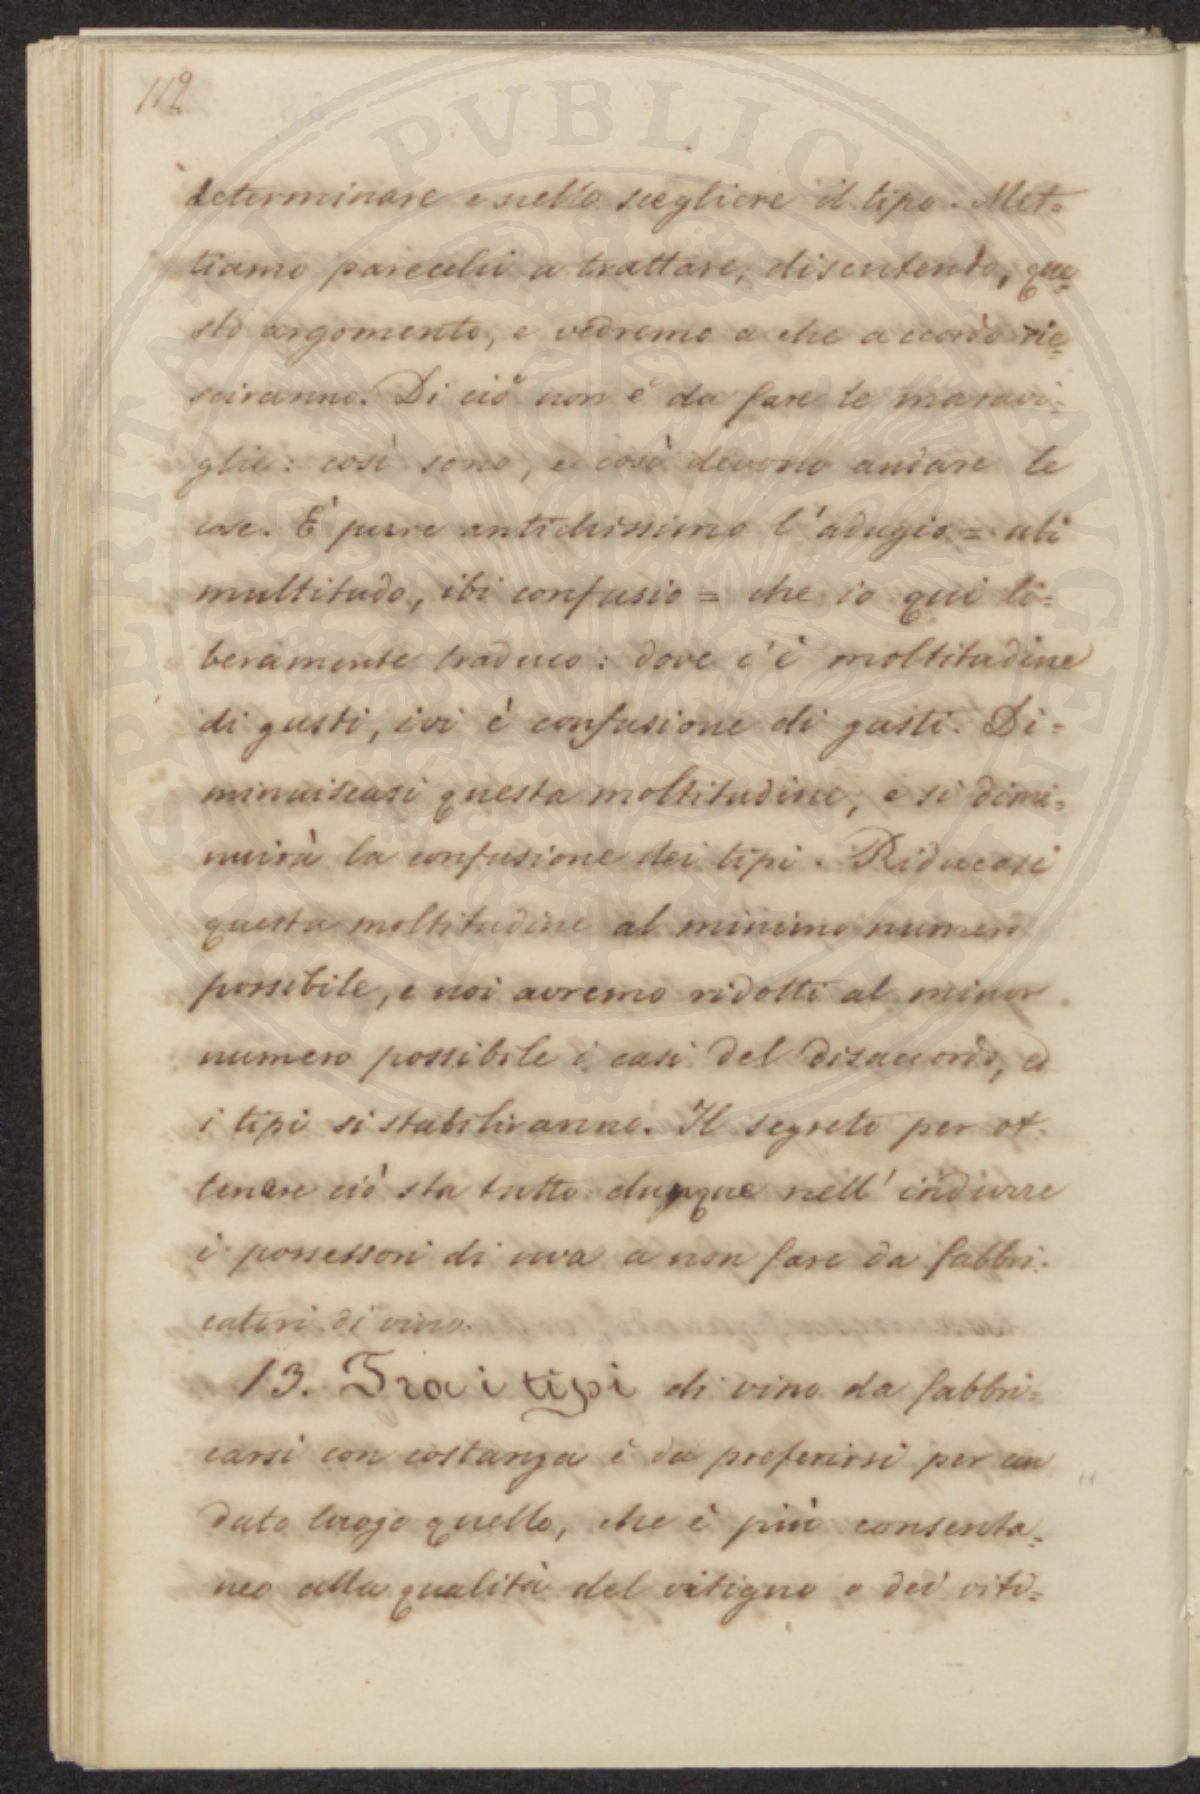 112
determinare e nello scegliere il tipo. Met=
tiamo parecchi a trattare, discutendo, que=
sto argomento, e vedremo a che accordo rie=
sciranno. Di ciò non è da fare le maravi=
glie: così sono, e così devono andare le
cose. È pure antichissimo l'adagio = ubi
multitudo, ibi confusio = che io qui li=
beramente traduco: dove c'è moltitudine
di gusti, ivi è confusione di gusti. Di=
minuiscasi questa moltitudine, e si dimi=
nuirà la confusione dei tipi. Riducasi
questa moltitudine al minimo numero
possibile, e noi avremo ridotti al minor
numero possibile i casi del disaccordo, ed
i tipi si stabiliranno. Il segreto per ot=
tenere ciò sta tutto dunque nell'indurre
i possessori di uva a non fare da fabbri=
catori di vino.
13. Tra i tipi di vino da fabbri=
carsi con costanza è da preferirsi per un
dato luogo quello, che è più consenta=
neo alla qualità del vitigno o dei viti=
PVBLICAE VTILITATI